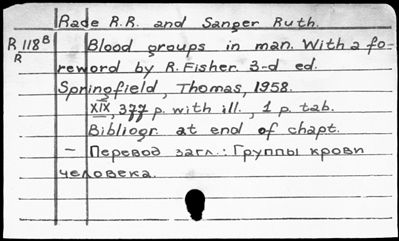 Rade R.R. and Sanger Ruth.
R 118⁸ Blood groups in man. With a fo-
R
reword by R. Fisher. 3-d ed.
Springfield, Thomas, 1958.
XIX, 377 p. with ill., 1 p. tab.
Bibliogr. at end of chapt.
— Перевод загл.: Группы крови
человека.